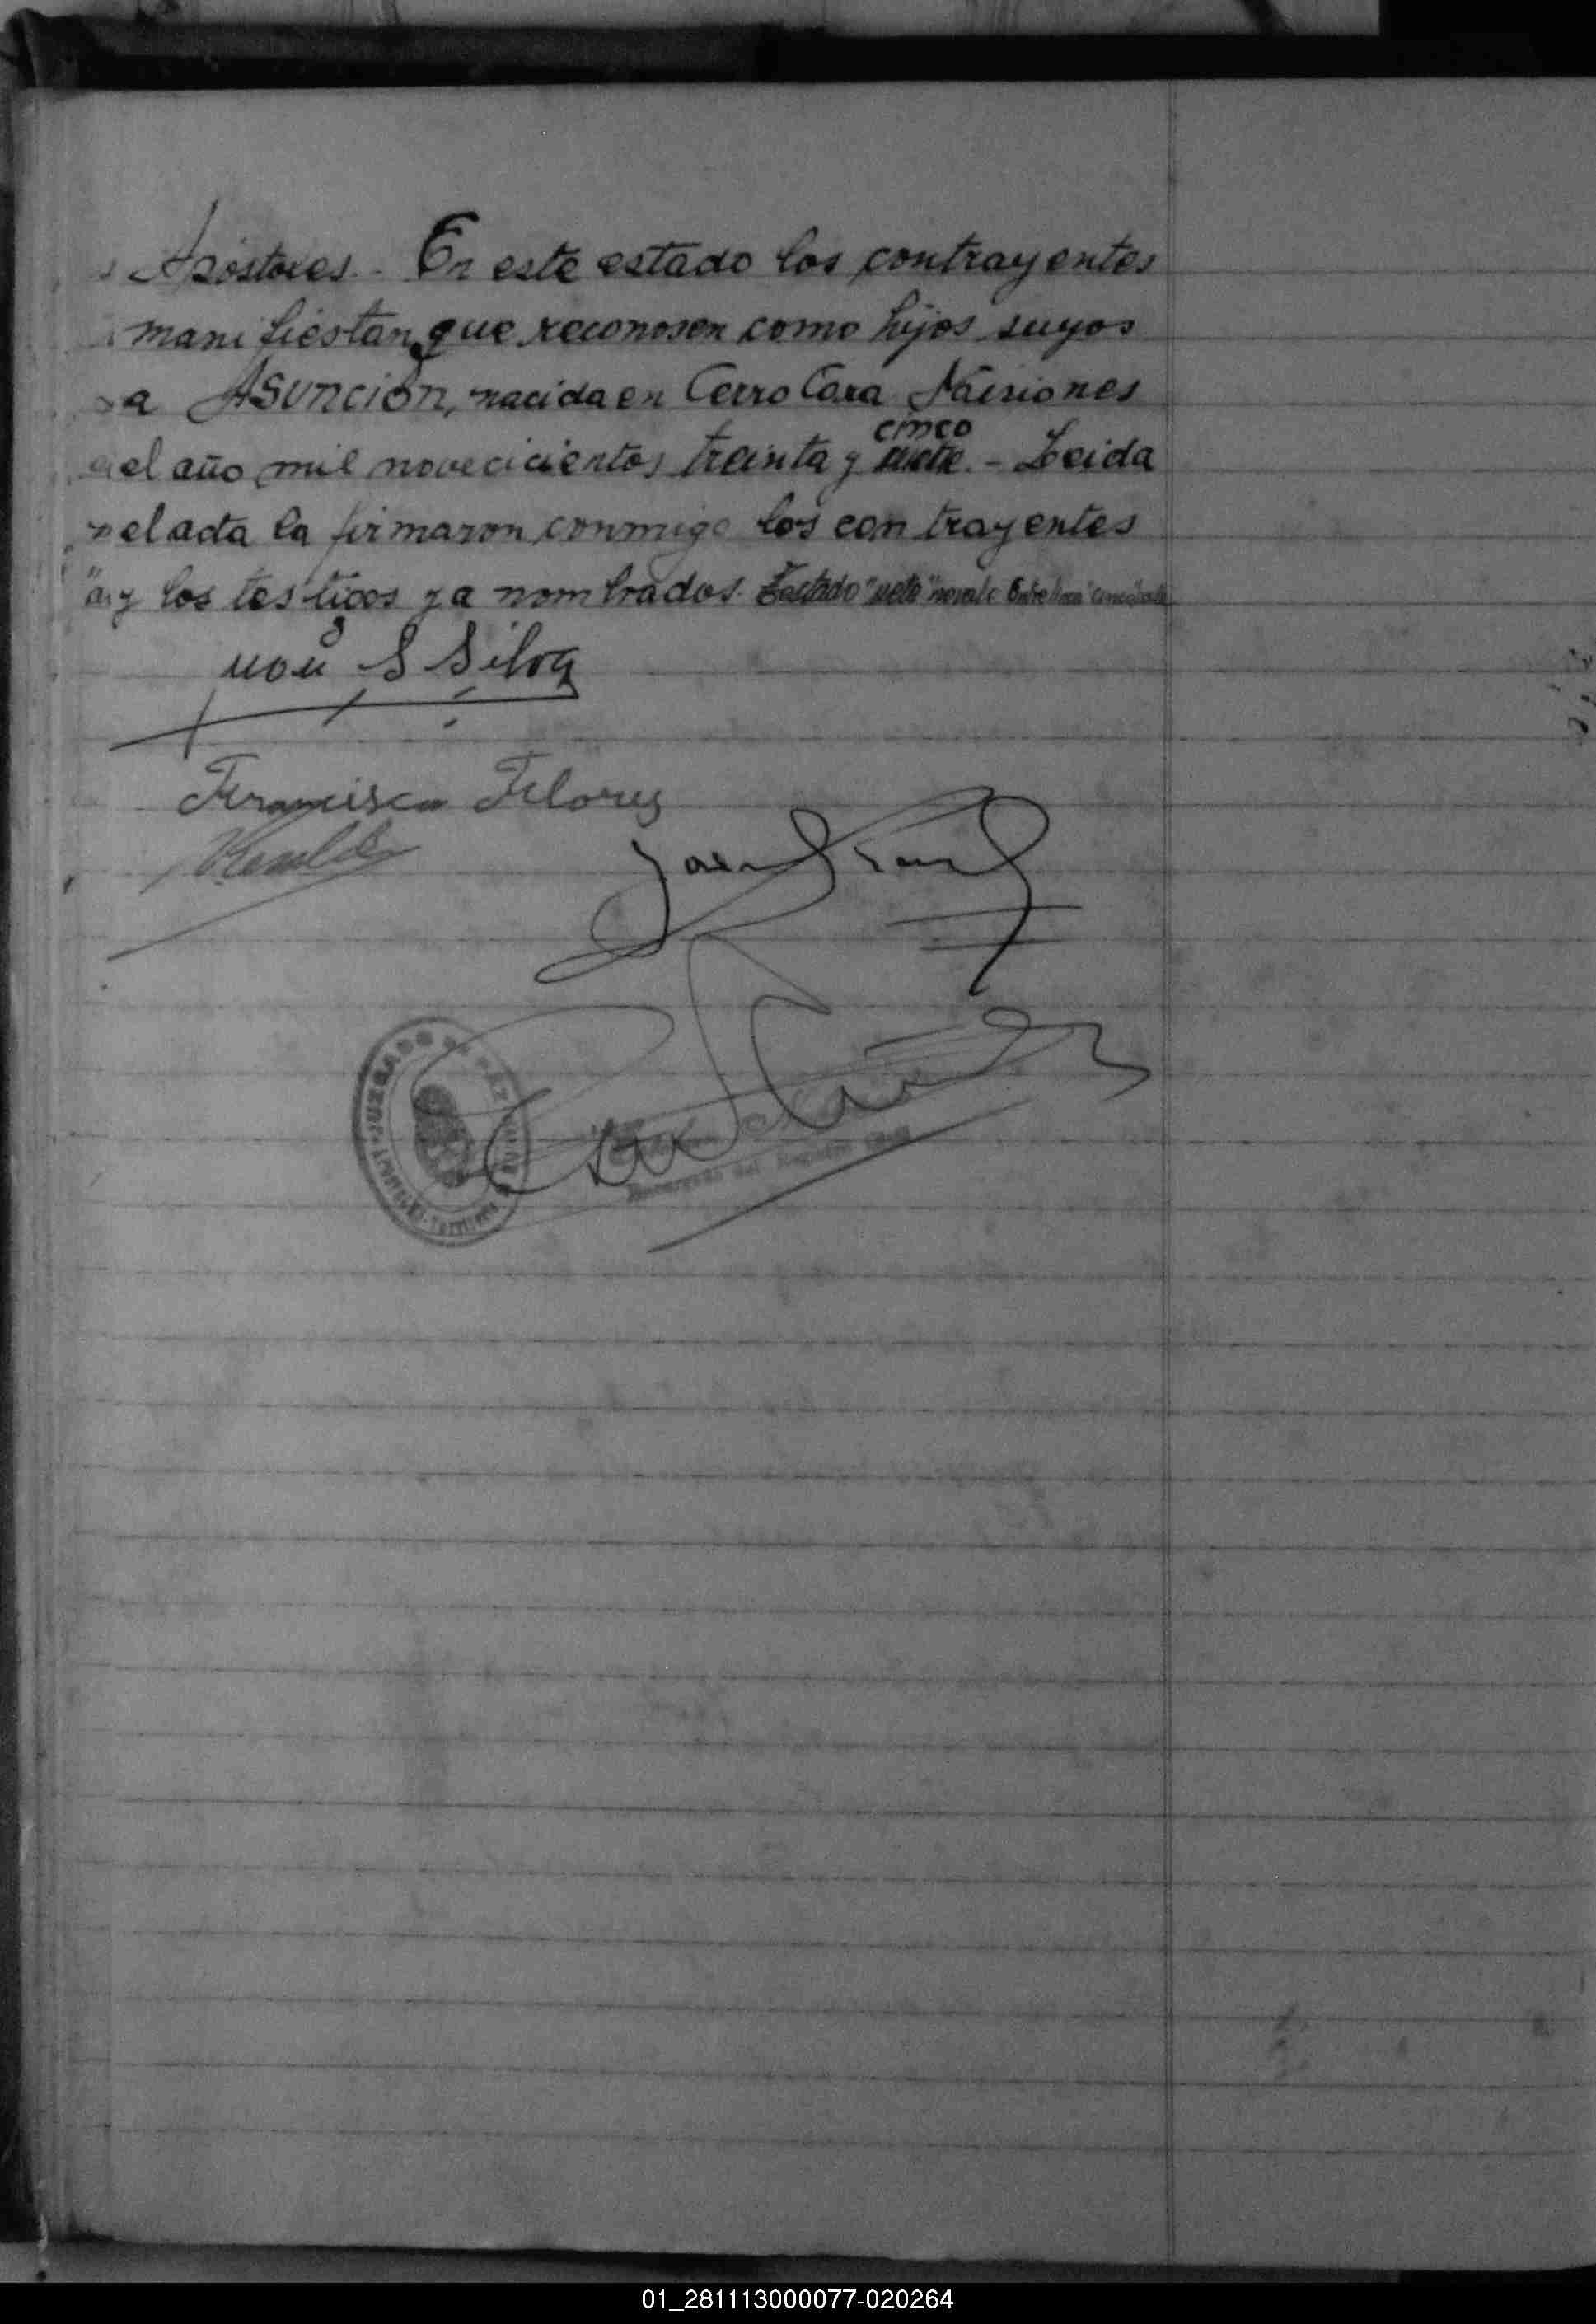 Apóstoles. - En este estado los contrayentes
manifiestan que reconosen como hijos suyos
a Asunción, nacida en Cerro Cora Misiones
el año mil novecicientos treinta y siete cinco. - Leida
el acta la firmaron conmigo los contrayentes
y los testigos ya nombrados. Testado "siete" no vale Entre linea "cinco" vale
S Silva
Francisca Flores
JUZGADO DE PAZ
Encargado del Registro Civil
01_281113000077-020264